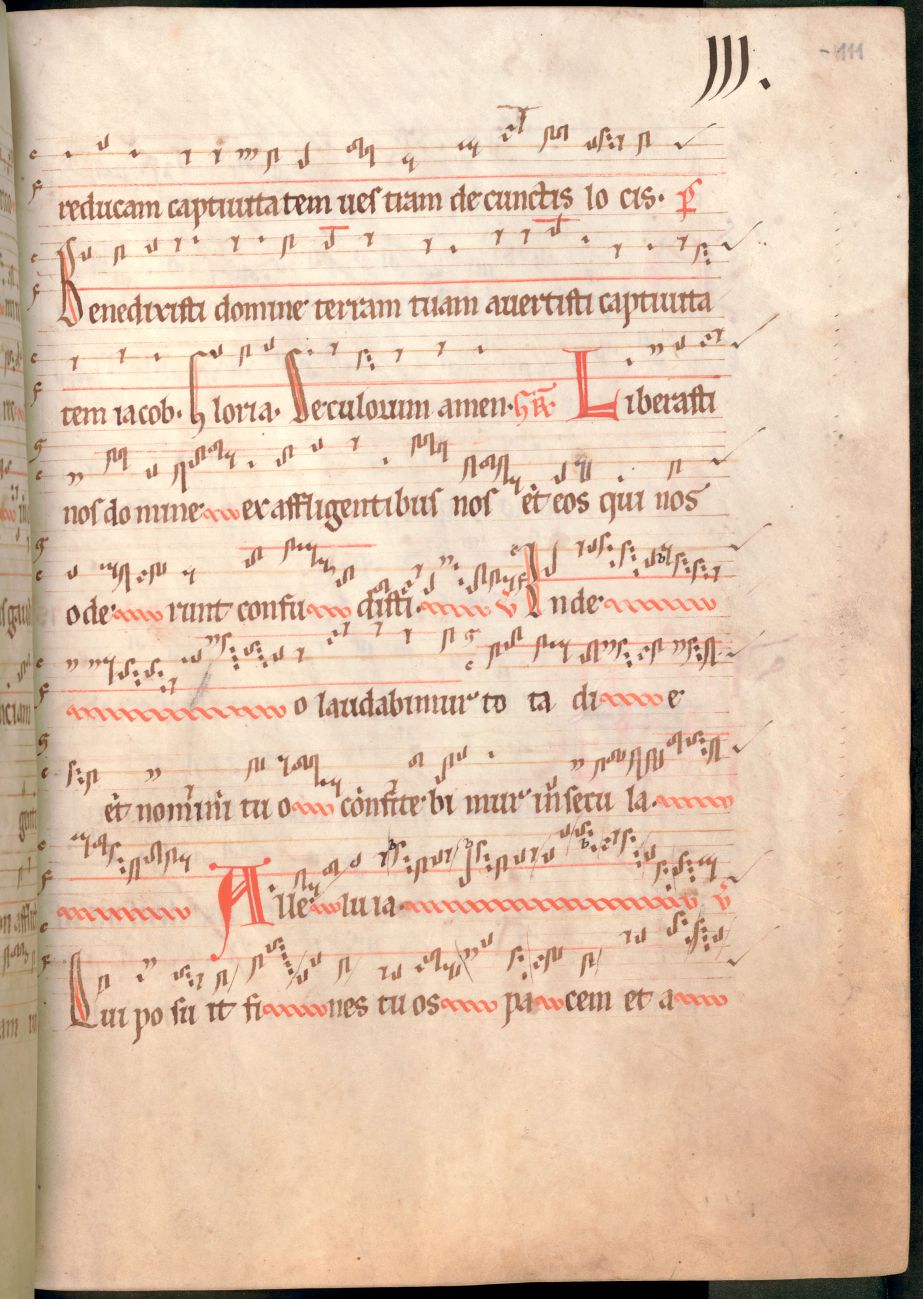 III.
- 111
reducam captiuitatem ues tram de cunctis lo cis. p̄s
Benedixisti domine terram tuam auertisti captiuita
tem iacob. Gloria. Seculorum amen. GR̄. Liberasti
nos do mine ex affligentibus nos et eos qui nos
ode runt confu disti. V̄ In de
o laudabimur to ta di e
et nomini tu o confitebi mur in secu la.
Alle luia. V̄
Qui po su it fi nes tu os pa cem et a